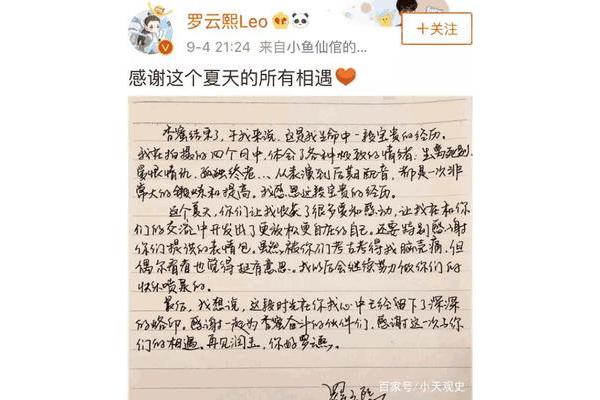 罗云熙Leo
+关注
9-4 21:24 来自小鱼仙倌的...
感谢这个夏天的所有相遇
香蜜结束了,于我来说,这是我生命中一段宝贵的经历。
我在拍摄的四个月中,体会了各种极致的情绪,生离死别,
爱恨情仇,孤独终老...从表演到后期配音,都是一次非
常大的锻炼和提高。我感恩这段宝贵的经历。
这个夏天,你们让我收获了很多爱和感动,让我在和你
们的交流中开发出了更放松更自在的自己。还要特别感谢
你们提供的表情包。虽然被你们考古考得我脑壳痛,但
偶尔看看也觉得挺有意思。我以后会继续勤力做你们的
快乐喷雾的。
最后,我想说,这段时光在你我心中已经留下了深深
的烙印。感谢一起为香蜜奋斗的伙伴们,感谢这一次与你
们的相遇。再见润玉,你好罗云熙。
罗云熙
百家号/小天观史